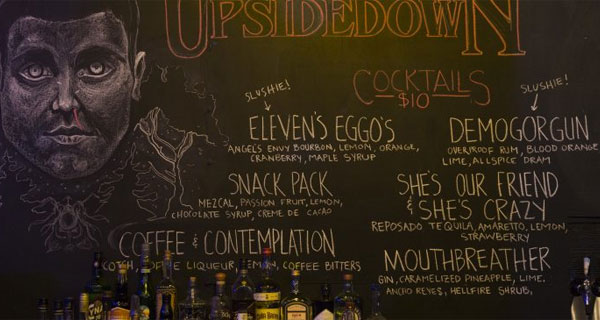 UPSIDEDOWN
COCKTAILS
$10
SLUSHIE!
ELEVEN'S EGGO'S
ANGEL'S ENVY BOURBON, LEMON, ORANGE,
CRANBERRY, MAPLE SYRUP
SNACK PACK
MEZCAL, PASSION FRUIT, LEMON,
CHOCOLATE SYRUP, CREME DE CACAO
COFFEE & CONTEMPLATION
SCOTCH, COFFEE LIQUEUR, LEMON, COFFEE BITTERS
SLUSHIE!
DEMOGORGUN
OVERPROOF RUM, BLOOD ORANGE
LIME, ALLSPICE DRAM
SHE'S OUR FRIEND
& SHE'S CRAZY
REPOSADO TEQUILA, AMARETTO, LEMON,
STRAWBERRY
MOUTHBREATHER
GIN, CARAMELIZED PINEAPPLE, LIME,
ANCHO REYES, HELLFIRE SHRUB,